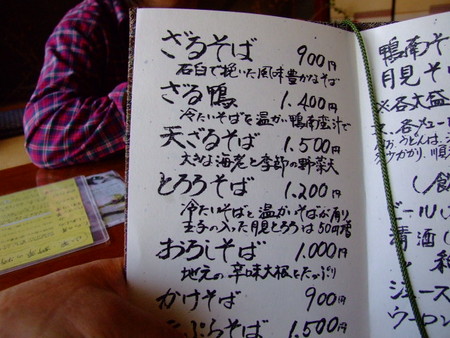 ざるそば 900円
石臼で挽いた風味豊かなそば
ざる鴨 1.400円
冷たいそばを温かい鴨南蛮汁で
天ざるそば 1.500円
大きな海老と季節の野菜天
とろろそば 1.200円
冷たいそばと温かいそばが有り
玉子の入った月見とろろは50円増
おろしそば 1.000円
地元の辛味大根をたっぷり
かけそば 900円
天ぷらそば 1.500円
鴨南そ
月見そ
※各大盛
※各メニュー
うどんは、
ビール
清酒
ジュース
ウーロン